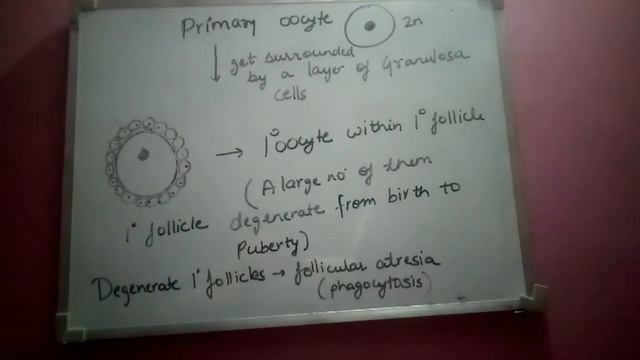 Primary oocyte 2n
get surrounded
by a layer of Granulosa
cells
→ 1° oocyte within 1° follicle
(A large no. of them
1° follicle degenerate from birth to
puberty)
Degenerate 1° follicles → follicular atresia
(phagocytosis)